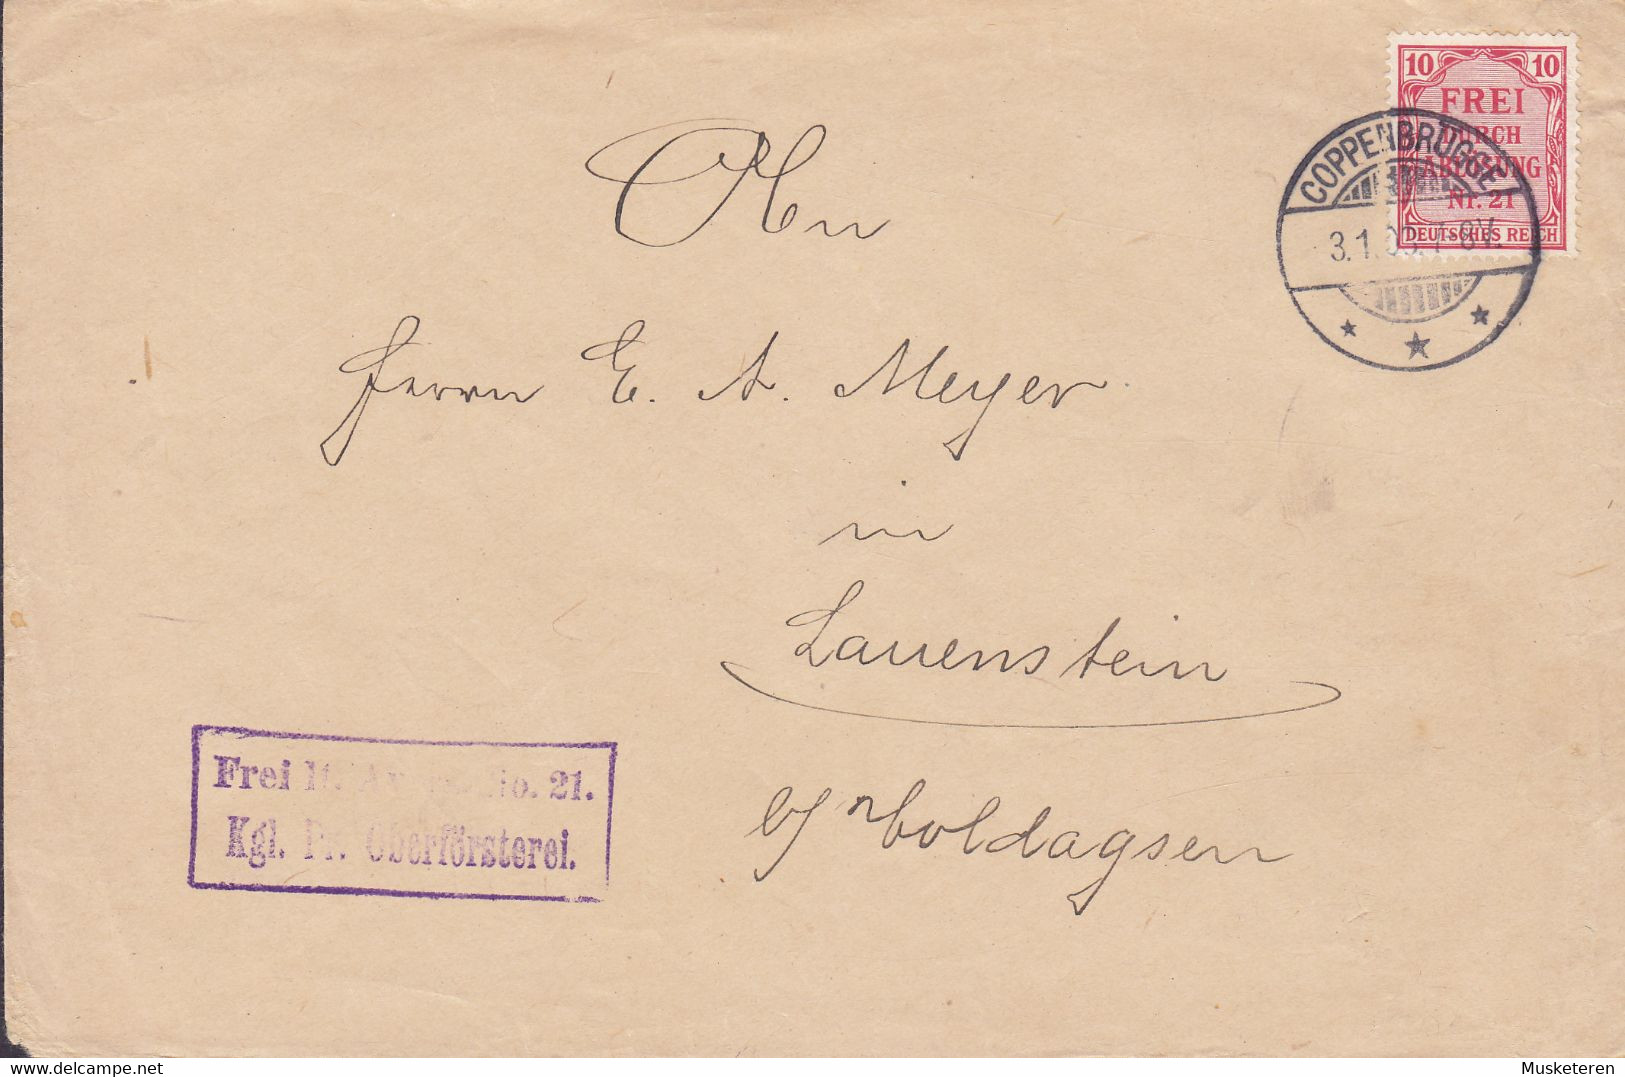 10 10
FREI
DURCH
ABLÖSUNG
Nr. 21
DEUTSCHES REICH
COPPENBRÜGGE
3.1. 7-8V.
An
Herrn E. A. Meyer
in
Lauenstein
b/ Voldagsen
Frei lt. No. 21.
Kgl. Pr. Oberförsterei.
www.delcampe.net
Musketeren